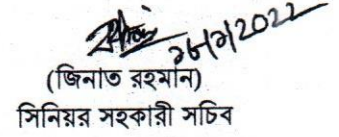 ২৮/৯/2022
(জিনাত রহমান)
সিনিয়র সহকারী সচিব